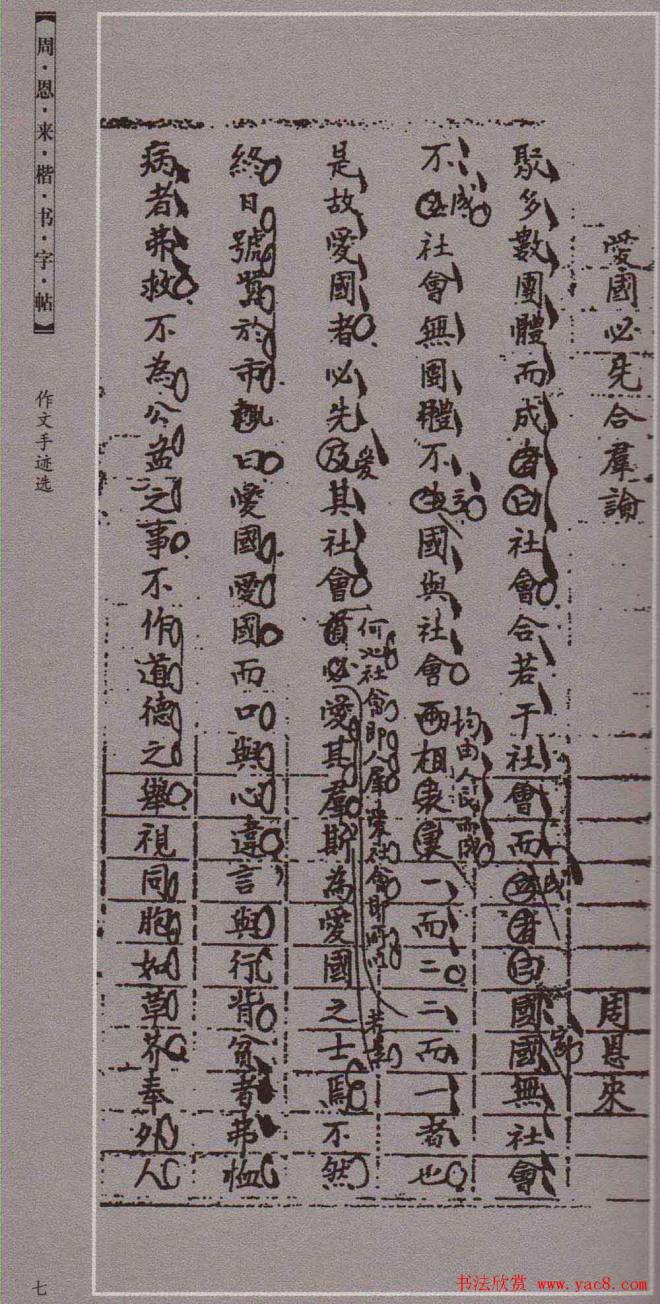 愛國必先合羣論
周恩來
聚多數團體而成者曰社會合若干社會而成者曰國國無社會
不成社會無團體不立國與社會兩相表裏一而二二而一者也
均由人民而成
是故愛國者必先及其社會首必愛其羣斯為愛國之士焉不然
愛
何況社會即人羣愛社會即所以
終日號於市曰愛國愛國而口與心違言與行背貧者弗恤
病者弗救不為公益之事不作道德之舉視同胞如草芥奉外人
【周·恩·来·楷·书·字·帖】
作文手迹选
七
书法欣赏 www.yac8.com